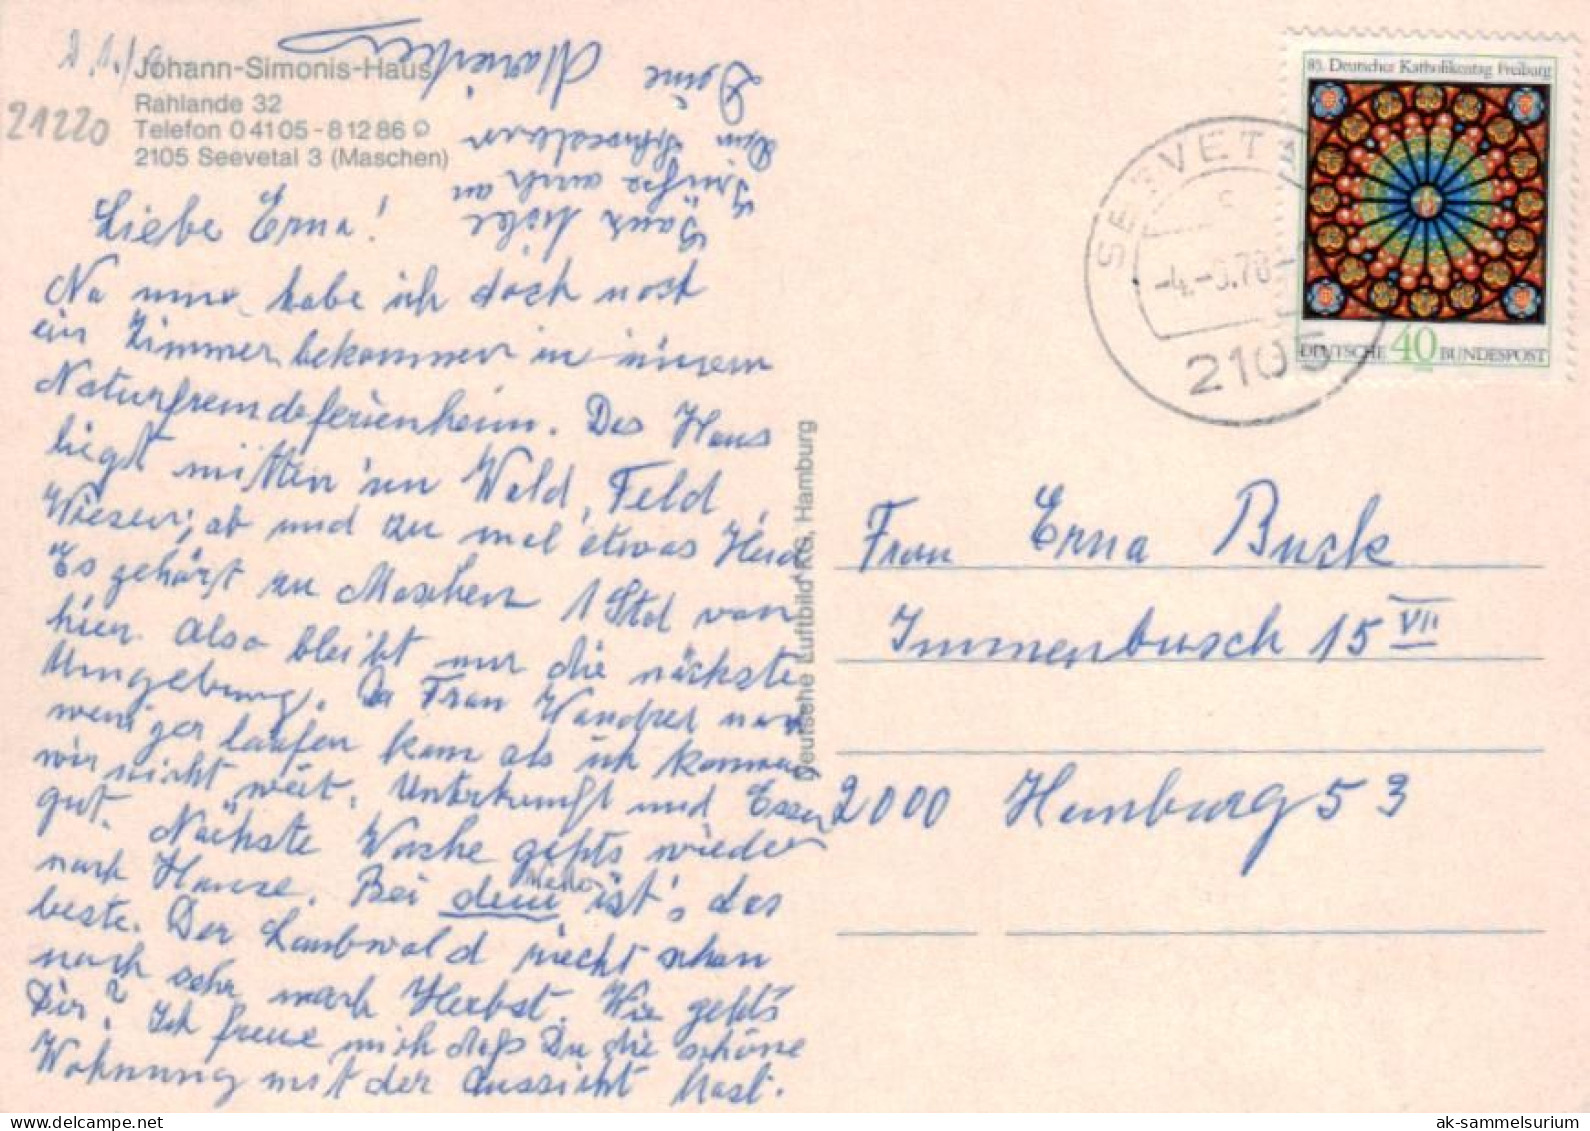 21220
Johann-Simonis-Haus
Rahlande 32
Telefon 0 41 05 - 8 12 86
2105 Seevetal 3 (Maschen)
Liebe Erna!
Na nun habe ich doch noch
ein Zimmer bekommen in einem
Naturfreundeferienheim. Das Haus
liegt mitten im Wald, Feld,
Wiesen; ab und zu mal etwas Heide
Es gehört zu Maschen 1 Std von
hier. Also bleibt nur die nächste
Umgebung. Da Frau noch
weniger laufen kann als ich kommen
wir nicht weit. Unterkunft und Essen
gut. Nächste Woche gehts wieder
nach Hause. Bei dem ist's das
beste. Der Laubwald riecht schon
nach sehr nach Herbst. Wie gehts
Dir? Ich freue mich daß Du die schöne
Wohnung mit der Aussicht hast.
Ganz viele
Grüße auch an
Deine
85. Deutscher Katholikentag Freiburg
DEUTSCHE 40 BUNDESPOST
SEEVETAL
2105
Deutsche Luftbild KG, Hamburg
Frau Erna Buck
Immenbusch 15 VII
2000 Hamburg 53
ak-sammelsurium